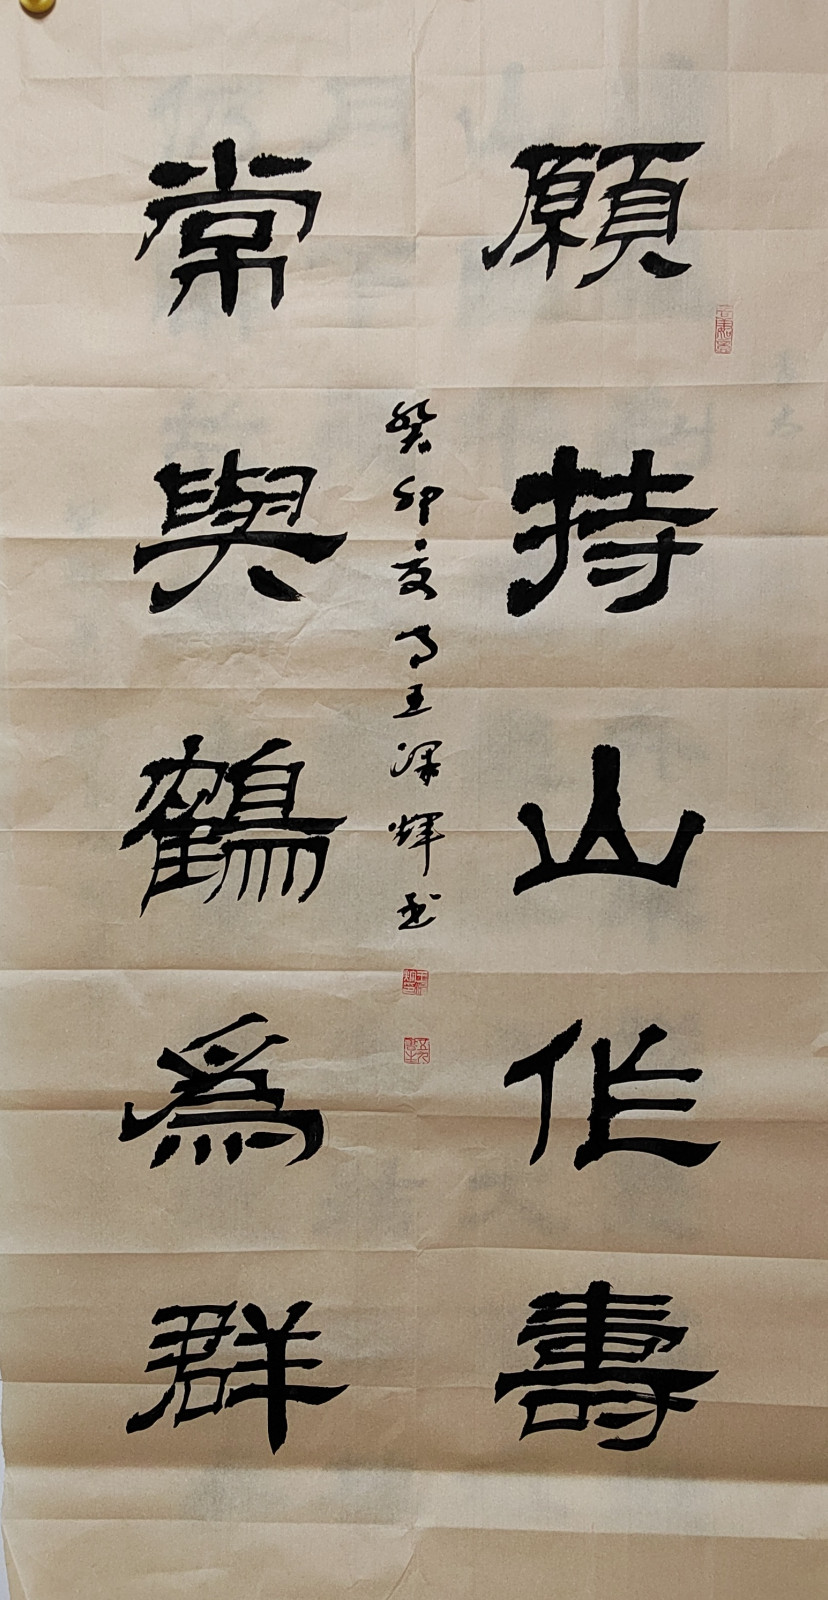 願持山作壽
常與鶴爲群
癸卯夏月王深輝書